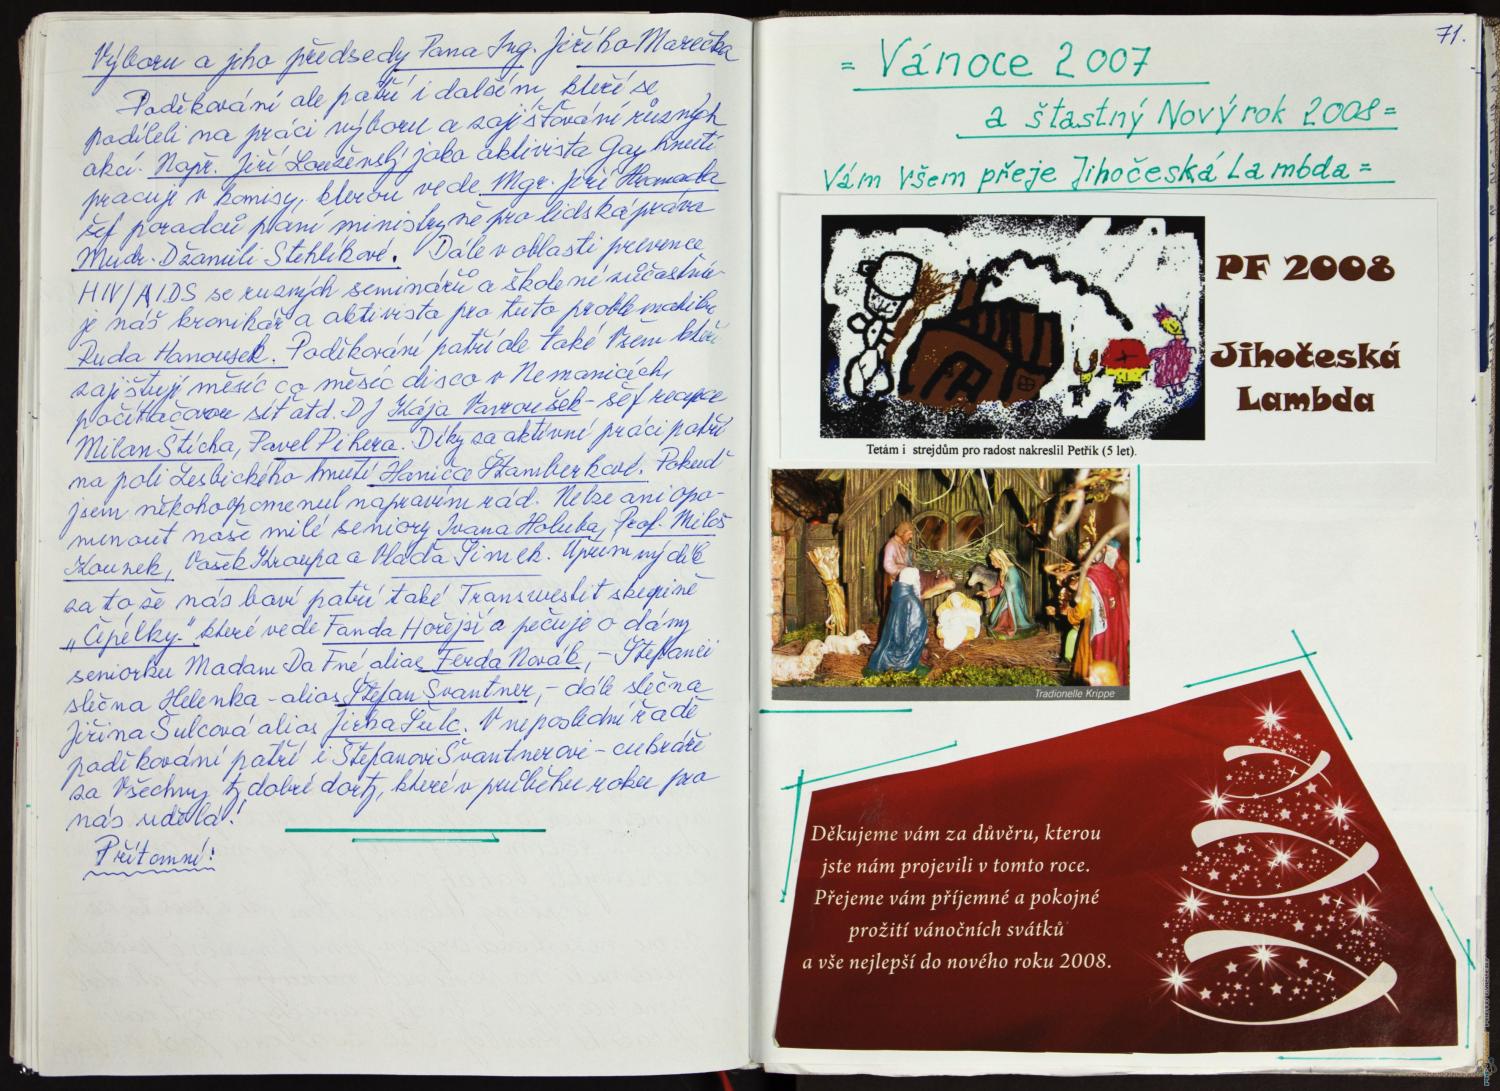 Výboru a jeho předsedy Pana Ing. Jiřího Marečka
Poděkování ale patří i dalším, kteří se
podíleli na práci výboru a zajišťování různých
akcí. Např. Jiří Louženský jako aktivista Gay hnutí
pracuje v komisy, kterou vede Mgr. Jiří Hromada
šéf poradců paní ministryně pro lidská práva
Mudr. Džamili Stehlíkové. Dále v oblasti prevence
HIV/AIDS se ruzných seminářů a školení zůčastňu-
je náš kronikář a aktivista pro tuto problematiku
Ruda Hanousek. Poděkování patří ale také Všem kteří
zajištují měsíc co měsíc disco v Nemanicích,
počítačovou síť atd. DJ Kája Vavroušek - šéf recepce
Milan Šticha, Pavel Pihera. Díky za aktivní práci patří
na poli Lesbického hnutí Haničce Štamberkové. Pokuď
jsem někoho opomenul napravím rád. Nelze ani opo-
menout naše milé seniory Ivana Holuba, Prof. Miloš
Kounek, Vašek Kroupa a Vláďa Šimek. Uprimný dík
za to že nás baví patří také Transwestit skupině
„Čipélky" které vede Fanda Hořejší a pečuje o dámy
seniorku Madam Da Fné alias Ferda Novák, -
slečna Helenka - alias Štefan Švantner, - dále slečna
Jiřina Šulcová alias Jirka Šulc. V neposlední řadě
poděkování patří i Štefanovi Švantnerovi - cukráři
za Všechny ty dobré dorty, které v průběhu roku pro
nás udělá!
Přítomni:
71.
= Vánoce 2007
a štastný Nový rok 2008 =
Vám všem přeje Jihočeská Lambda =
PF 2008
Jihočeská
Lambda
Tetám i strejdům pro radost nakreslil Petřík (5 let).
Tradionelle Krippe
Děkujeme vám za důvěru, kterou
jste nám projevili v tomto roce.
Přejeme vám příjemné a pokojné
prožití vánočních svátků
a vše nejlepší do nového roku 2008.